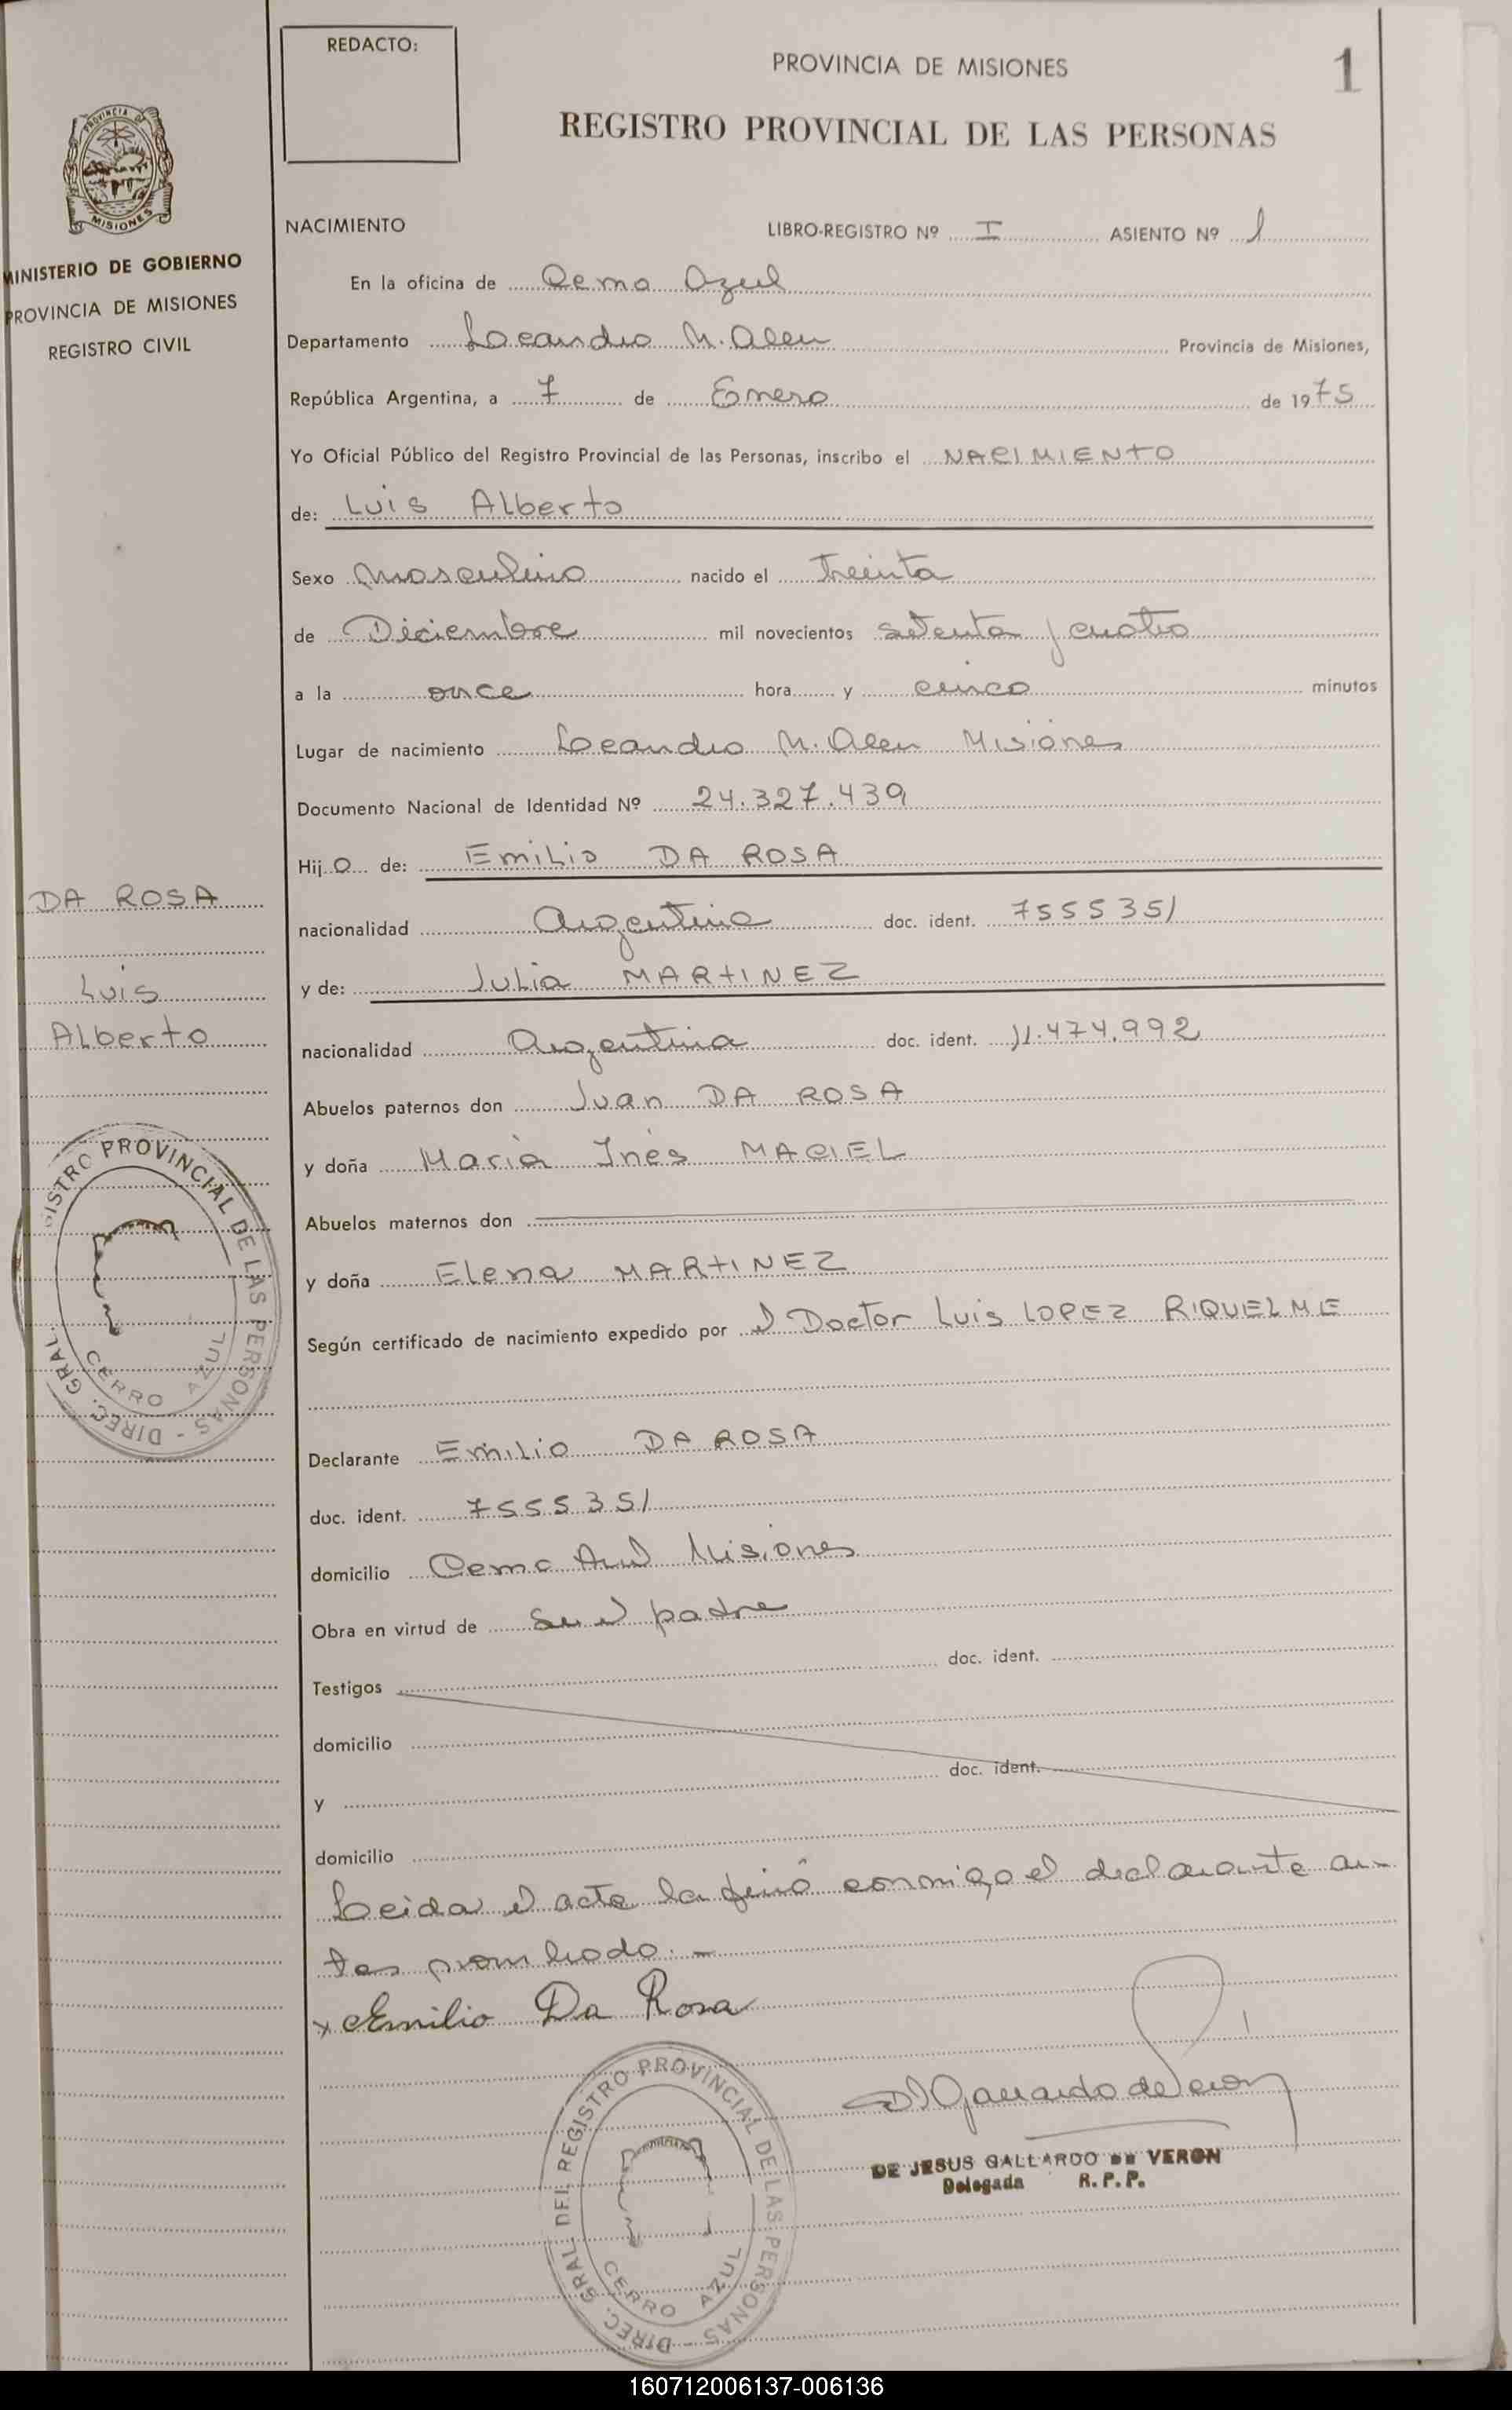 REDACTO:
PROVINCIA DE MISIONES
1
REGISTRO PROVINCIAL DE LAS PERSONAS
PROVINCIA DE
MISIONES
MINISTERIO DE GOBIERNO
PROVINCIA DE MISIONES
REGISTRO CIVIL
NACIMIENTO LIBRO-REGISTRO Nº I ASIENTO Nº 1
En la oficina de Cerro Azul
Departamento Leandro N. Alem Provincia de Misiones,
República Argentina, a 7 de Enero de 1975
Yo Oficial Público del Registro Provincial de las Personas, inscribo el NACIMIENTO
de: Luis Alberto
Sexo Masculino nacido el Treinta
de Diciembre mil novecientos setenta y cuatro
a la once hora y cinco minutos
Lugar de nacimiento Leandro N. Alem Misiones
Documento Nacional de Identidad Nº 24.327.439
Hijo de: Emilio DA ROSA
DA ROSA
nacionalidad Argentina doc. ident. 7555351
y de: Julia MARTINEZ
Luis
Alberto
nacionalidad Argentina doc. ident. 11.474.992
Abuelos paternos don Juan DA ROSA
y doña Maria Inés MACIEL
Abuelos maternos don
y doña Elena MARTINEZ
Según certificado de nacimiento expedido por el Doctor Luis LOPEZ RIQUELME
DIREC. GRAL. REGISTRO PROVINCIAL DE LAS PERSONAS -
CERRO AZUL
Declarante Emilio DA ROSA
doc. ident. 7555351
domicilio Cerro Azul Misiones
Obra en virtud de Ser el padre
Testigos doc. ident.
domicilio
y doc. ident.
domicilio
Leida el acta la firmó conmigo el declarante an-
tes nombrado.-
x Emilio Da Rosa
D J Gallardo de Veron
DE JESUS GALLARDO DE VERON
Delegada R. P. P.
DIREC. GRAL. DEL REGISTRO PROVINCIAL DE LAS PERSONAS -
CERRO AZUL
160712006137-006136